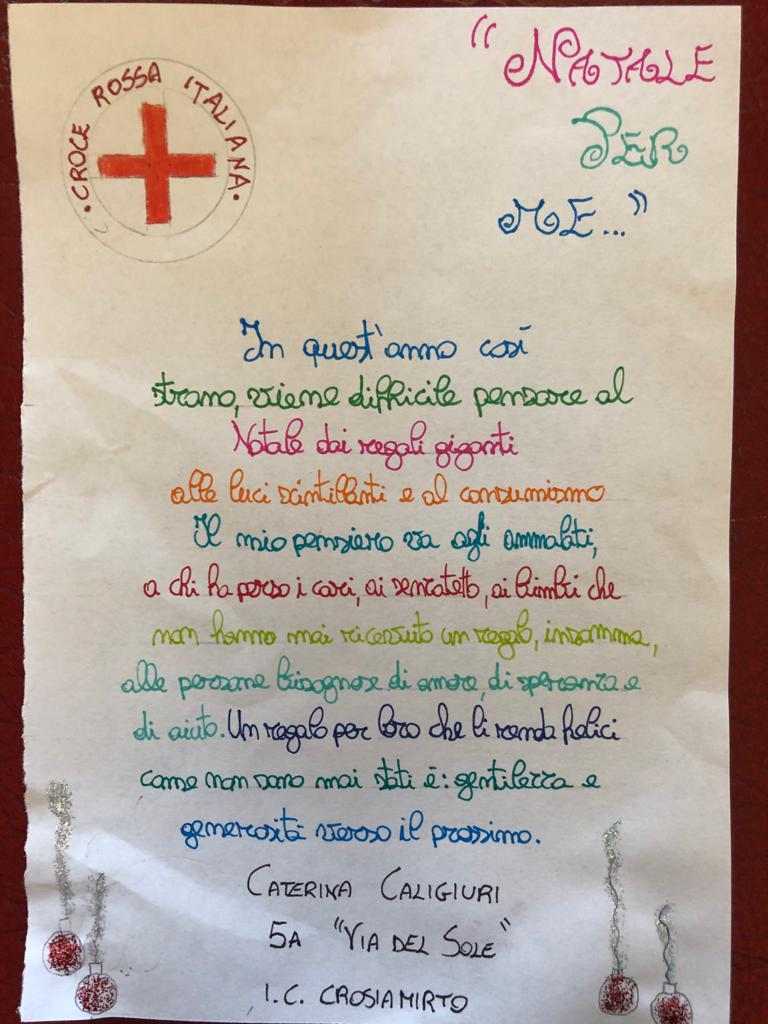 • CROCE ROSSA ITALIANA •
"NATALE
PER
ME..."
In quest'anno così
strano, viene difficile pensare al
Natale dai regali giganti
alle luci scintillanti e al consumismo
Il mio pensiero va agli ammalati,
a chi ha perso i cari, ai senzatetto, ai bimbi che
non hanno mai ricevuto un regalo, insomma,
alle persone bisognose di amore, di speranza e
di aiuto. Un regalo per loro che li renda felici
come non sono mai stati è: gentilezza e
generosità verso il prossimo.
CATERINA CALIGIURI
5A "VIA DEL SOLE"
I.C. CROSIAMIRTO